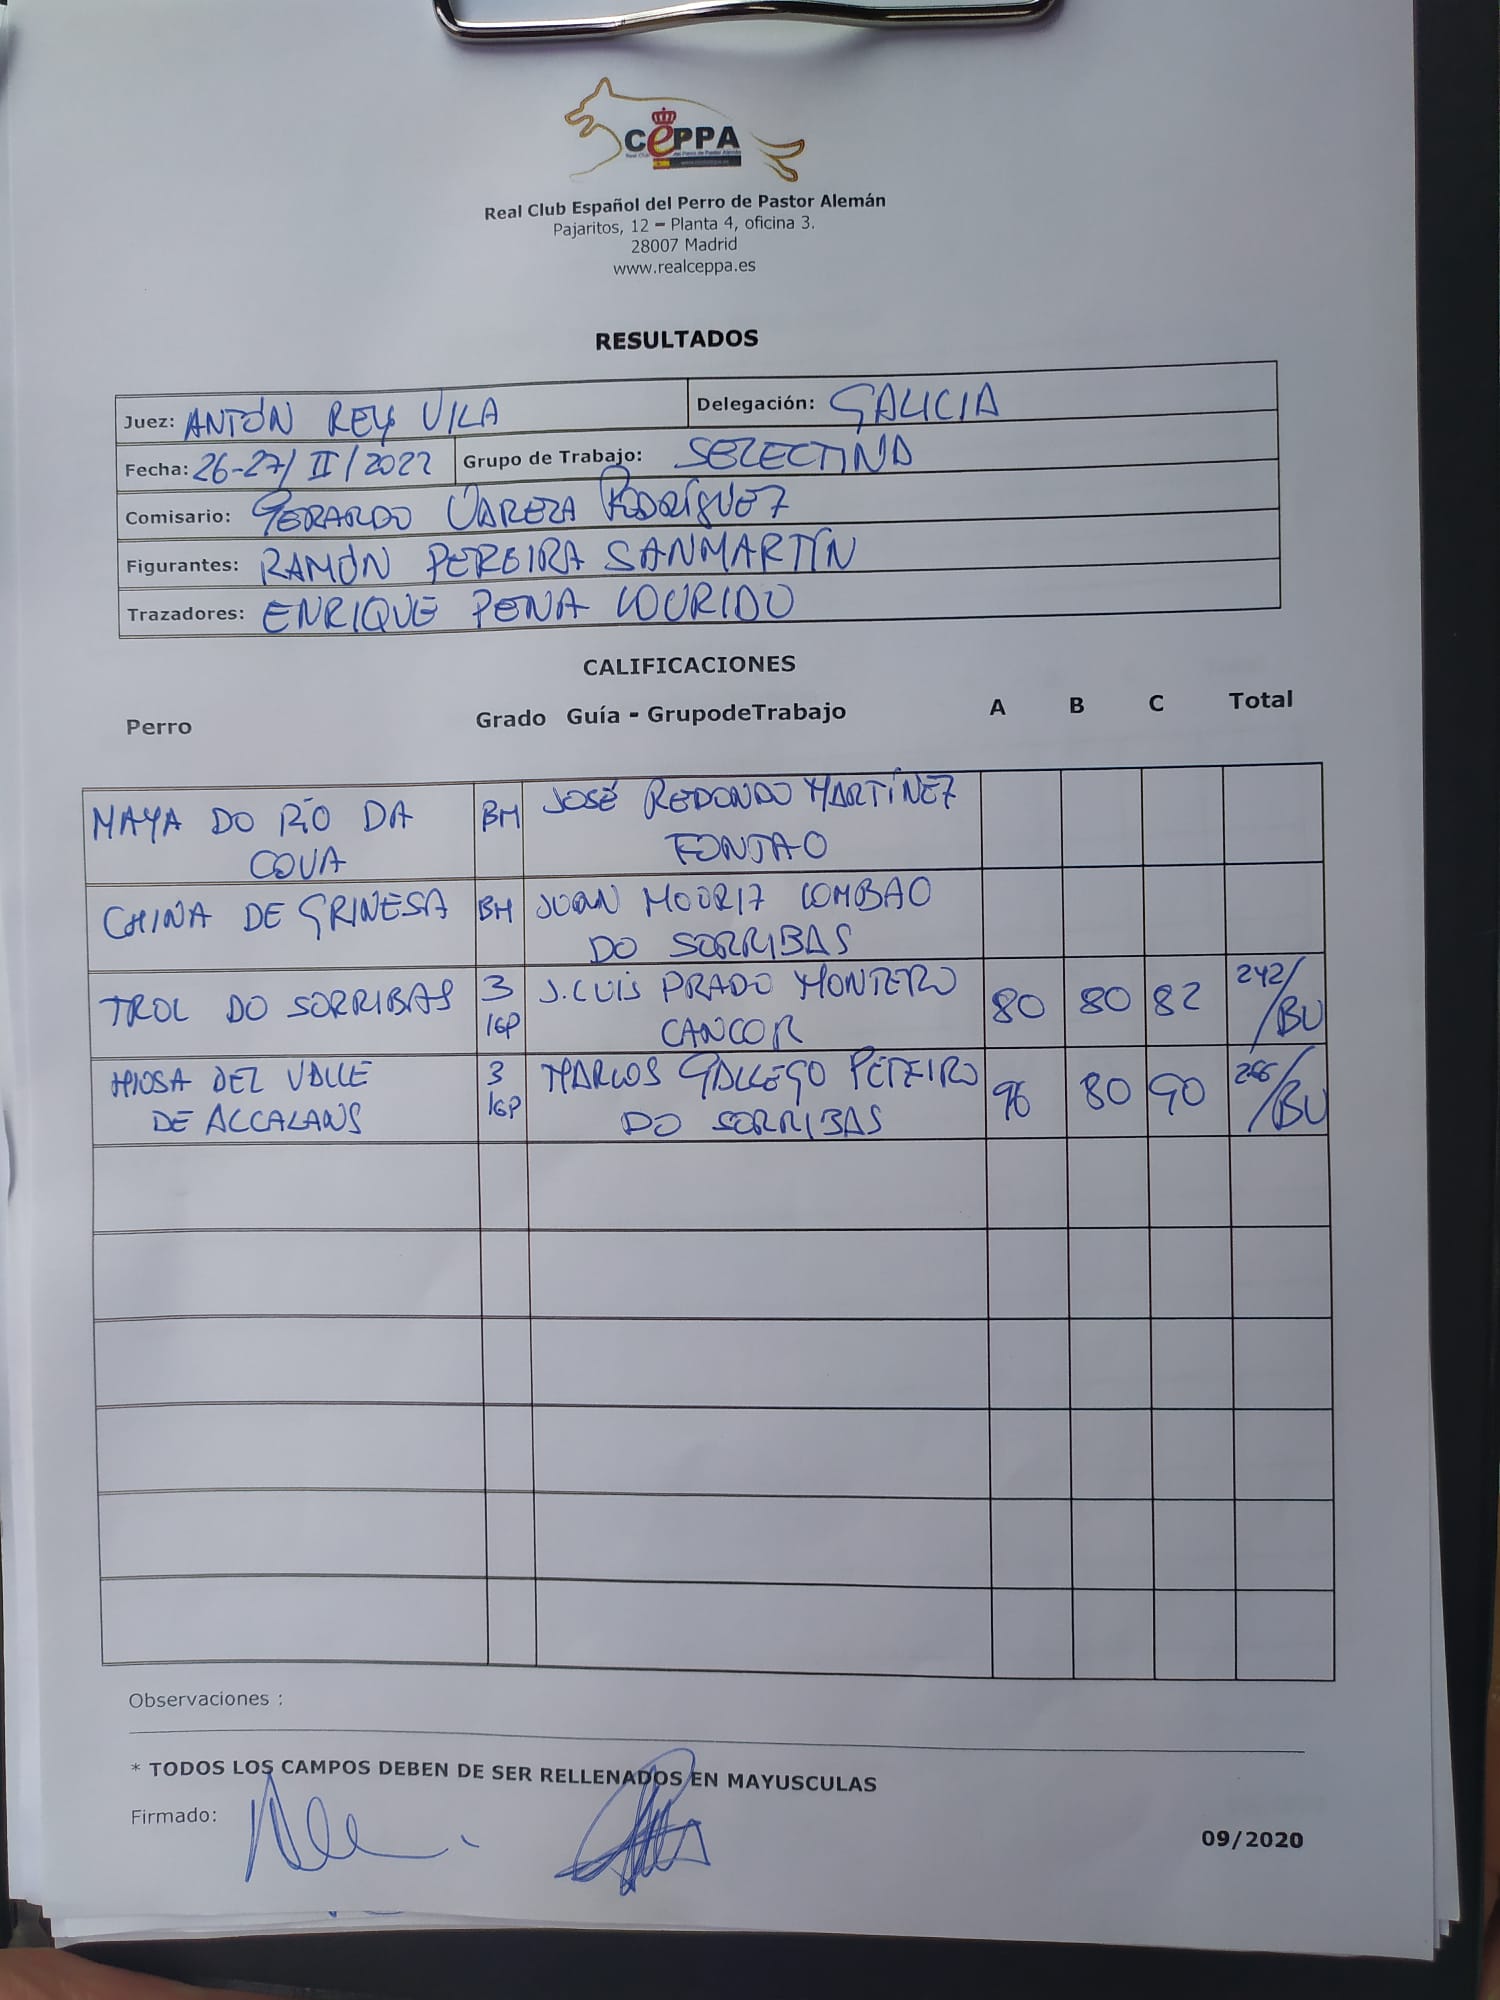 CEPPA
Real Club Español del Perro de Pastor Alemán
Pajaritos, 12 – Planta 4, oficina 3.
28007 Madrid
www.realceppa.es
RESULTADOS
Juez: ANTÓN REY VILA Delegación: GALICIA
Fecha: 26-27/II/2022 Grupo de Trabajo:
Comisario: GERARDO VARELA RODRÍGUEZ
Figurantes: RAMÓN PEREIRA SANMARTÍN
Trazadores: ENRIQUE PENA LOURIDO
CALIFICACIONES
Perro Grado Guía - GrupodeTrabajo A B C Total
MAYA DO RÍO DA COVA BH JOSÉ REDONDO MARTÍNEZ
FONTAO
CHINA DE GRINESA BH JUAN MOURIZ COMBAO
DO SORRIBAS
TROL DO SORRIBAS 3 IGP J. LUIS PRADO MONTERO 80 80 82 242/BU
CANCOR
DEL VALLE DE ALCALANS 3 IGP MARCOS GALLEGO PETEIRO 96 80 90 266/BU
DO SORRIBAS
Observaciones :
* TODOS LOS CAMPOS DEBEN DE SER RELLENADOS EN MAYUSCULAS
Firmado:
09/2020